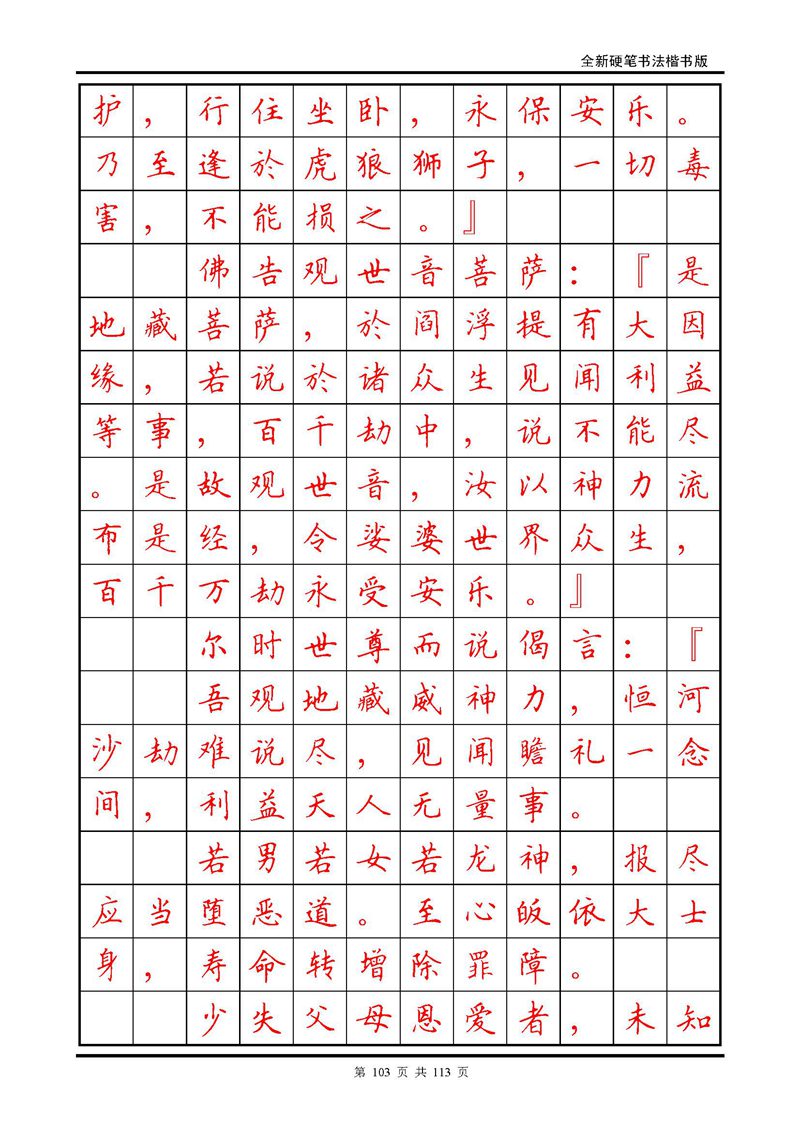 全新硬笔书法楷书版
护，行住坐卧，永保安乐。
乃至逢於虎狼狮子，一切毒
害，不能损之。』
佛告观世音菩萨：『是
地藏菩萨，於阎浮提有大因
缘，若说於诸众生见闻利益
等事，百千劫中，说不能尽
。是故观世音，汝以神力流
布是经，令娑婆世界众生，
百千万劫永受安乐。』
尔时世尊而说偈言：『
吾观地藏威神力，恒河
沙劫难说尽，见闻瞻礼一念
间，利益天人无量事。
若男若女若龙神，报尽
应当堕恶道。至心皈依大士
身，寿命转增除罪障。
少失父母恩爱者，未知
第 103 页 共 113 页